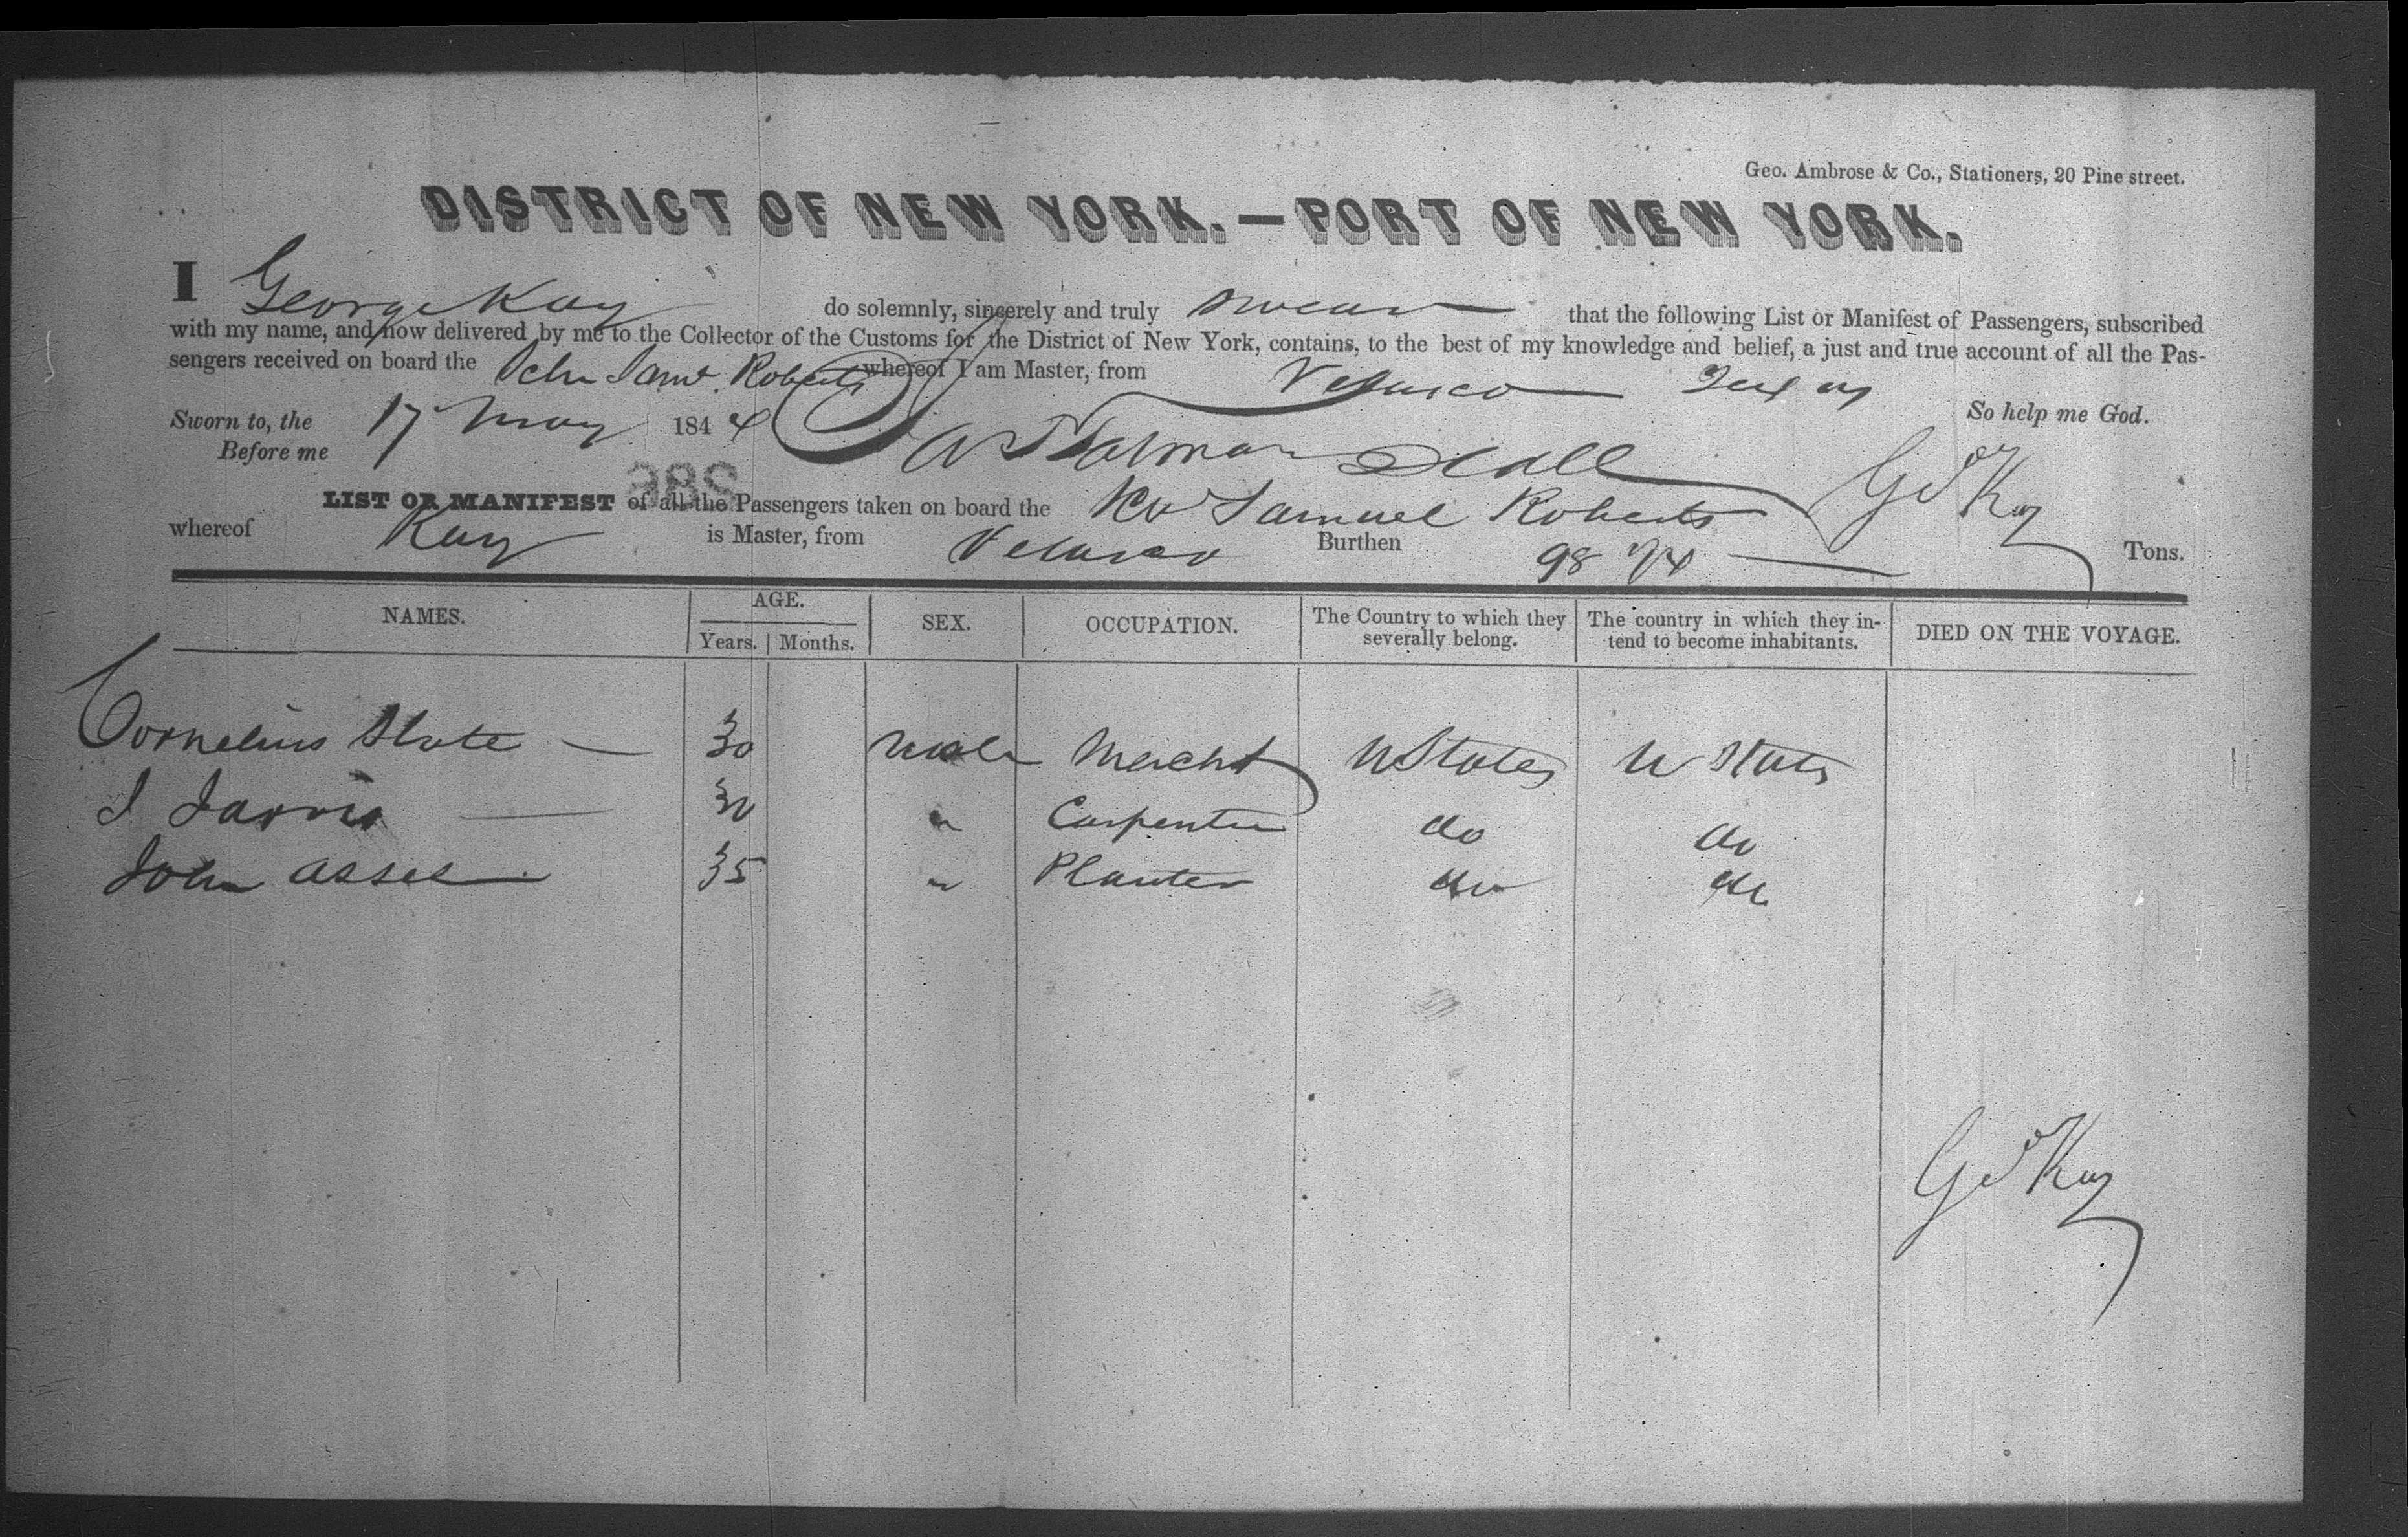 Geo. Ambrose & Co., Stationers, 20 Pine street.
DISTRICT OF NEW YORK.—PORT OF NEW YORK.
I George Kay do solemnly, sincerely and truly swear that the following List or Manifest of Passengers, subscribed
with my name, and now delivered by me to the Collector of the Customs for the District of New York, contains, to the best of my knowledge and belief, a just and true account of all the Pas-
sengers received on board the Schr Saml. Roberts whereof I am Master, from Velasco Texas
Sworn to, the 17 May 1844 So help me God.
Before me Geo Kay
LIST OR MANIFEST of all the Passengers taken on board the Samuel Roberts
whereof Kay is Master, from Velasco Burthen 98 Tons.
NAMES. AGE. SEX. OCCUPATION. The Country to which they severally belong. The country in which they in- tend to become inhabitants. DIED ON THE VOYAGE.
Years. Months.
Cornelius Slate — 30 male Mercht U States U States
J Jarvis — 30 " Carpenter do do
John Assel 35 " Planter do do
Geo Kay